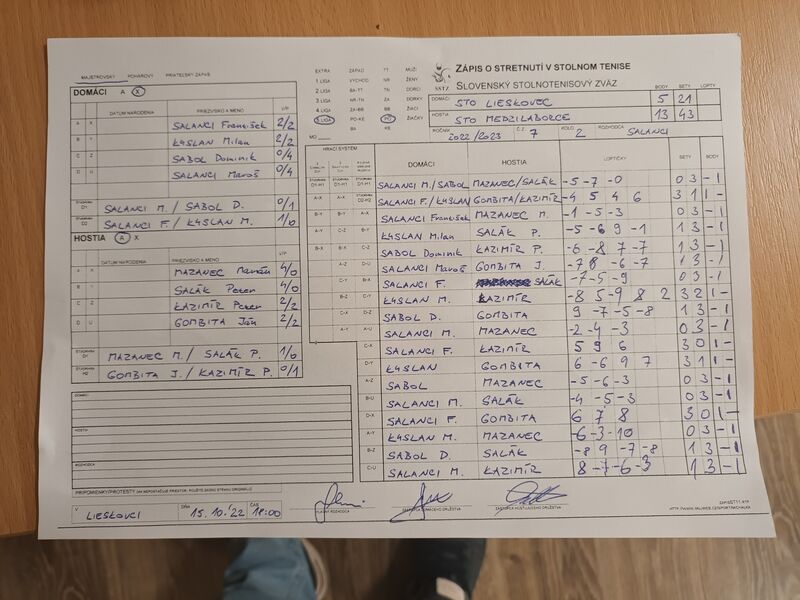 MAJETROVSKÝ POHÁROVÝ PRIATEĽSKÝ ZÁPAS
DOMÁCI A X
DÁTUM NARODENIA PRIEZVISKO A MENO V/P
A X SALANCI František 2/2
B Y KYSLAN Milan 2/2
C Z SABOL Dominik 0/4
D U SALANCI Maroš 0/4
ŠTVORHRA D1 SALANCI M. / SABOL D. 0/1
ŠTVORHRA D2 SALANCI F. / KYSLAN M. 1/0
HOSTIA A X
DÁTUM NARODENIA PRIEZVISKO A MENO V/P
A X MAZANEC Marián 4/0
B Y SALÁK Peter 4/0
C Z KAZIMÍR Peter 2/2
D U GOMBITA Ján 2/2
ŠTVORHRA D1 MAZANEC M. / SALÁK P. 1/0
ŠTVORHRA H2 GOMBITA J. / KAZIMÍR P. 0/1
DOMÁCI:
HOSTIA:
ROZHODCA:
PRIPOMIENKY/PROTESTY (AK NEPOSTAČUJE PRIESTOR, POUŽITE ZADNÚ STRANU ORIGINÁLU)
V LIESKOVCI DŇA 15.10.'22 ČAS 18:00
EXTRA ZÁPAD TT MUŽI
1 LIGA VÝCHOD NR ŽENY
2 LIGA BA-TT TN DORCI
3 LIGA NR-TN ZA DORKY
4 LIGA ZA-BB BB ŽIACI
5 LIGA PO-KE PO ŽIAČKY
BA KE
MO
SSTZ
ZÁPIS O STRETNUTÍ V STOLNOM TENISE
SLOVENSKÝ STOLNOTENISOVÝ ZVÄZ
BODY SETY LOPTY
DOMÁCI STO LIESKOVEC 5 21
HOSTIA STO MEDZILABORCE 13 43
ROČNÍK 2022/2023 Č.Z. 7 KOLO 2 ROZHODCA SALANCI
HRACÍ SYSTÉM DOMÁCI HOSTIA LOPTIČKY SETY BODY
SALANCI M./SABOL MAZANEC/SALÁK -5 -7 -0 0 3 - 1
SALANCI F./KYSLAN GOMBITA/KAZIMÍR -4 5 4 6 3 1 1 -
SALANCI František MAZANEC M. -1 -5 -3 0 3 - 1
KYSLAN Milan SALÁK P. -5 -6 9 -1 1 3 - 1
SABOL Dominik KAZIMÍR P. -6 -8 7 -7 1 3 - 1
SALANCI Maroš GOMBITA J. -7 8 -6 -7 1 3 - 1
SALANCI F. SALÁK -7 -5 -9 0 3 - 1
KYSLAN M. KAZIMÍR -8 5 -9 8 2 3 2 1 -
SABOL D. GOMBITA 9 -7 -5 -8 1 3 - 1
SALANCI M. MAZANEC -2 -4 -3 0 3 - 1
SALANCI F. KAZIMÍR 5 9 6 3 0 1 -
KYSLAN GOMBITA 6 -6 9 7 3 1 1 -
SABOL MAZANEC -5 -6 -3 0 3 - 1
SALANCI M. SALÁK -4 -5 -3 0 3 - 1
SALANCI F. GOMBITA 6 7 8 3 0 1 -
KYSLAN M. MAZANEC -6 -3 -10 0 3 - 1
SABOL D. SALÁK -8 9 -7 -8 1 3 - 1
SALANCI M. KAZIMÍR 8 -7 -6 -3 1 3 - 1
HLAVNÝ ROZHODCA ZÁSTUPCA DOMÁCEHO DRUŽSTVA ZÁSTUPCA HOSŤUJÚCEHO DRUŽSTVA